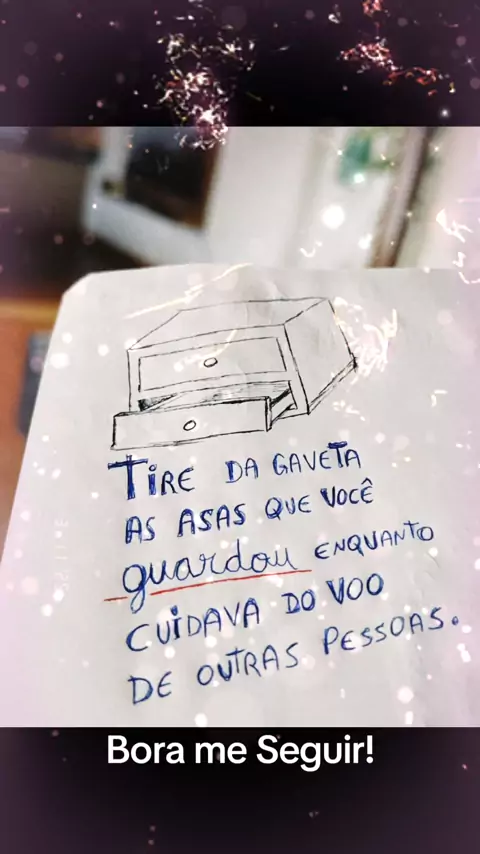 TIRE DA GAVETA
AS ASAS QUE VOCÊ
guardou ENQUANTO
CUIDAVA DO VOO
DE OUTRAS PESSOAS.
Bora me Seguir!